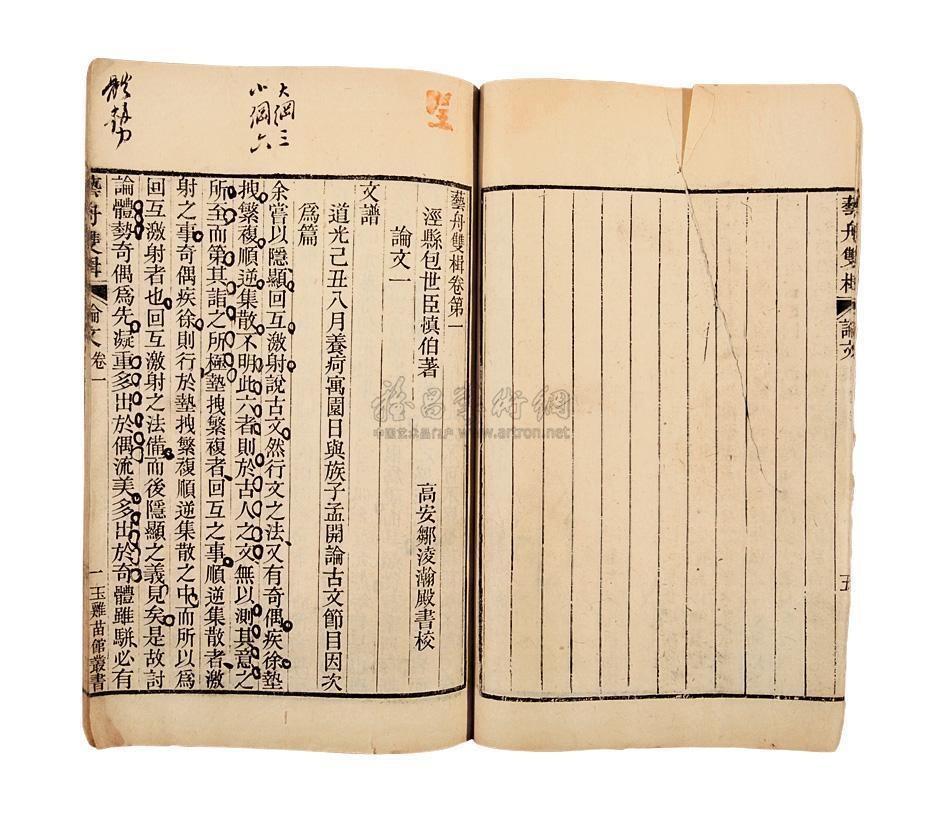 藝舟雙楫
論文
五
藝舟雙楫卷第一
涇縣包世臣慎伯著
高安鄒淩瀚殿書校
論文一
文譜
道光己丑八月養疴寓園日與族子孟開論古文節目因次
爲篇
余嘗以隱顯回互激射說古文然行文之法又有奇偶疾徐墊
拽繁複順逆集散不明此六者則於古人之文無以測其意之
所至而第其詣之所極墊拽繁複者回互之事順逆集散者激
射之事奇偶疾徐則行於墊拽繁複順逆集散之中而所以爲
回互激射者也回互激射之法備而後隱顯之義見矣是故討
論體勢奇偶爲先凝重多出於偶流美多出於奇體雖駢必有
藝舟雙楫
論文卷一
一
玉雞苗館叢書
大綱三
小綱六
體勢
中国艺术品门户 www.artron.net